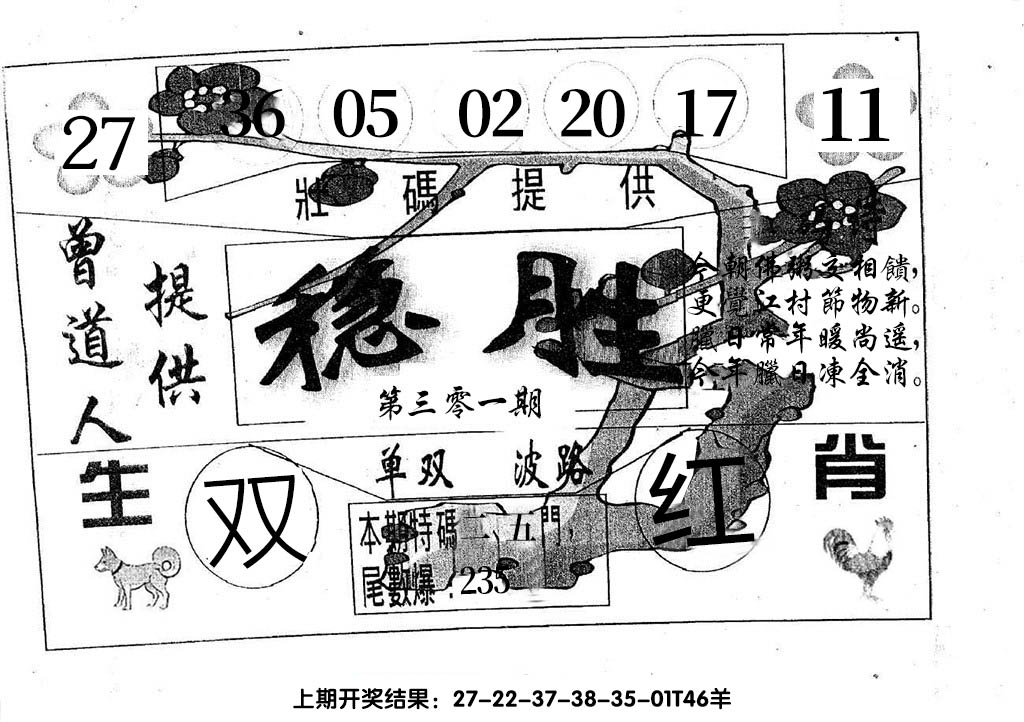 27 36 05 02 20 17 11
壯 碼 提 供
特
曾道人
提供
稳胜
第三零一期
今朝佛粥交相饋，
更覺江村節物新。
臘日常年暖尚遥，
今年臘日凍全消。
单双 波路
生肖
双 红
本期特碼二、五門，
尾數爆：235
上期开奖结果：27-22-37-38-35-01T46羊